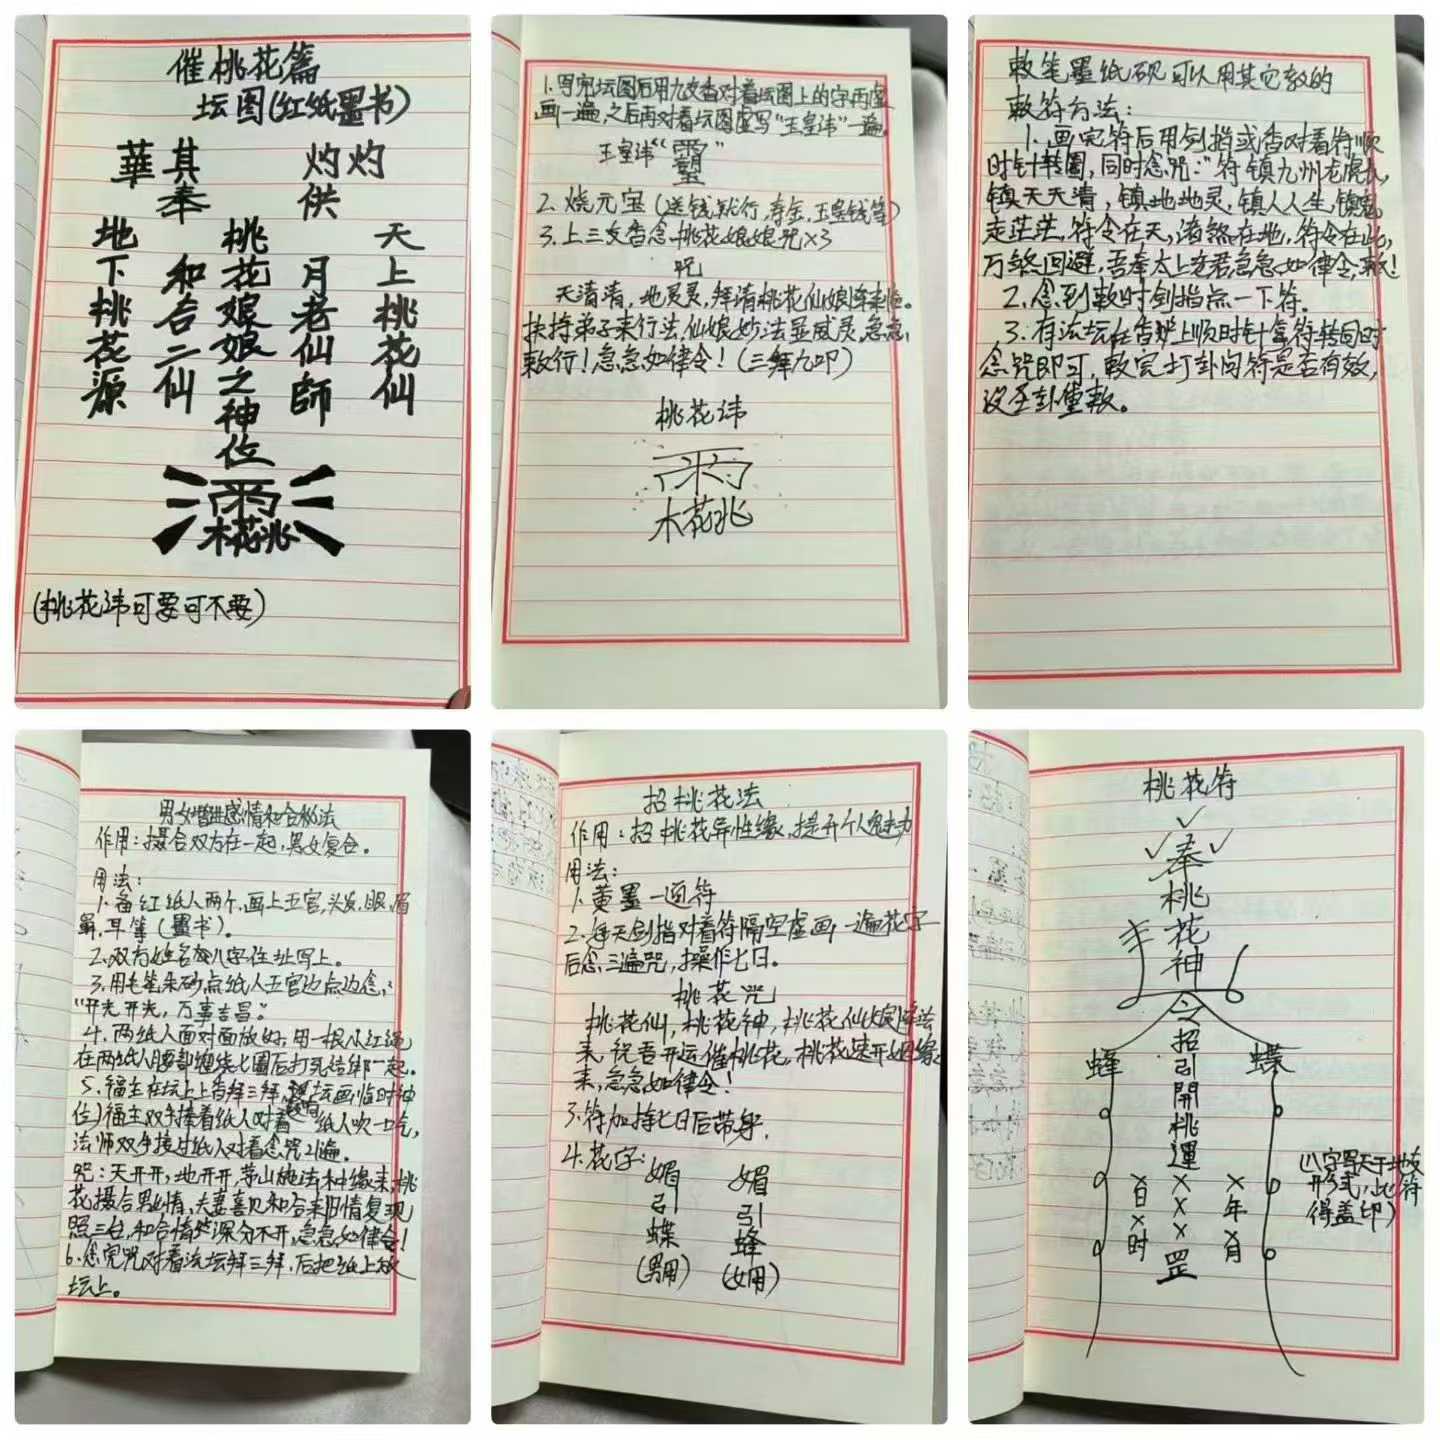 催桃花篇
坛图(红纸墨书)
華其 灼灼
奉 供
天上桃花仙
月老仙師
桃花娘娘之神位
和合二仙
地下桃花源
木花兆
(桃花讳可要可不要)
1.写完坛图后用九支香对着坛图上的字再虚
画一遍,之后再对着坛图虚写"玉皇讳"一遍。
玉皇讳"
2.烧元宝(送钱就行,寿金,玉皇钱等)
3.上三支香念桃花娘娘咒×3
咒
天清清,地灵灵,拜请桃花仙娘降来临。
扶持弟子来行法,仙娘妙法显威灵,急急
敕行!急急如律令!(三拜九叩)
桃花讳
木花兆
敕笔墨纸砚可以用其它敕的
敕符方法:
1.画完符后用剑指或香对着符顺
时针转圈,同时念咒:"符镇九州龙虎长,
镇天天清,镇地地灵,镇人人生,镇鬼
走茫茫,符令在天,诸煞在地,符令在此,
万煞回避,吾奉太上老君急急如律令,敕!
2.念到敕时剑指点一下符。
3.有法坛在香炉上顺时针拿符转同时
念咒即可,敕完打卦问符是否有效,
没圣卦重敕。
男女增进感情和合秘法
作用:撮合双方在一起,男女复合。
用法:
1.备红纸人两个,画上五官,头发,眼,眉
鼻,耳等(墨书)。
2.双方姓名八字住址写上。
3.用毛笔朱砂点纸人五官边点边念:
"开光开光,万事吉昌。"
4.两纸人面对面放好,用一根红绳
在两纸人腰部缠绕七圈后打死结绑一起。
5.福主在坛上上香拜三拜,(坛画临时神
位)福主双手捧着纸人对着纸人吹一口气,
法师双手接过纸人对着念咒21遍。
咒:天开开,地开开,茅山施法和缘来,桃
花撮合男女情,夫妻喜见和合来旧情复现
照三台,和合情深分不开,急急如律令!
6.念完咒对着法坛拜三拜,后把纸上放
坛上。
招桃花法
作用:招桃花异性缘,提升个人魅力
用法:
1.黄墨一道符
2.每天剑指对着符隔空虚画一遍花字
后念三遍咒,操作七日。
桃花咒
桃花仙,桃花神,桃花仙娘降坛
来,祝吾开运催桃花,桃花速开姻缘
来,急急如律令!
3.符加持七日后带身.
4.花字:
媚引蝶(男用)
媚引蜂(女用)
桃花符
奉桃花神
令
蜂 蝶
招引開桃運
×年×月
×××罡
×日×时
(八字写天干地支
形式,此符
得盖印)